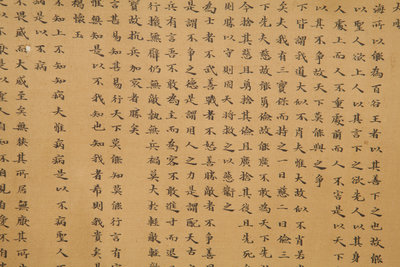 海所以能為百谷王者以其善下之也故能
以聖人欲上人以其言下之欲先人以其身
人處上而人不重處前而人不害是以天下
以其不爭故天下莫能與之爭
下皆謂我道大似不肖夫惟大故似不肖若肖
矣夫我有三寶保而持之一曰慈二曰儉三
下先夫慈故能勇儉故能廣不敢為天下先
今捨其慈且勇捨其儉且廣捨其後且先死
則勝以守則固天將救之以慈衛之
士者不武善戰者不怒善勝敵者不爭善用
是謂不爭之德是謂用人之力是謂配天古
兵有言吾不敢為主而為客不敢進寸而退
行攘無臂仍無敵執無兵禍莫大於輕敵輕敵
寶故抗兵相加哀者勝矣
言甚易知甚易行天下莫能知莫能行言有宗
惟無知是以不我知也知我者希則我貴矣是
褐懷玉
不知上不知知病夫惟病病是以不病聖人不
是以不病
畏威而大威至矣無狹其所居無厭其所
不厭是以聖人自知不自見自愛不自